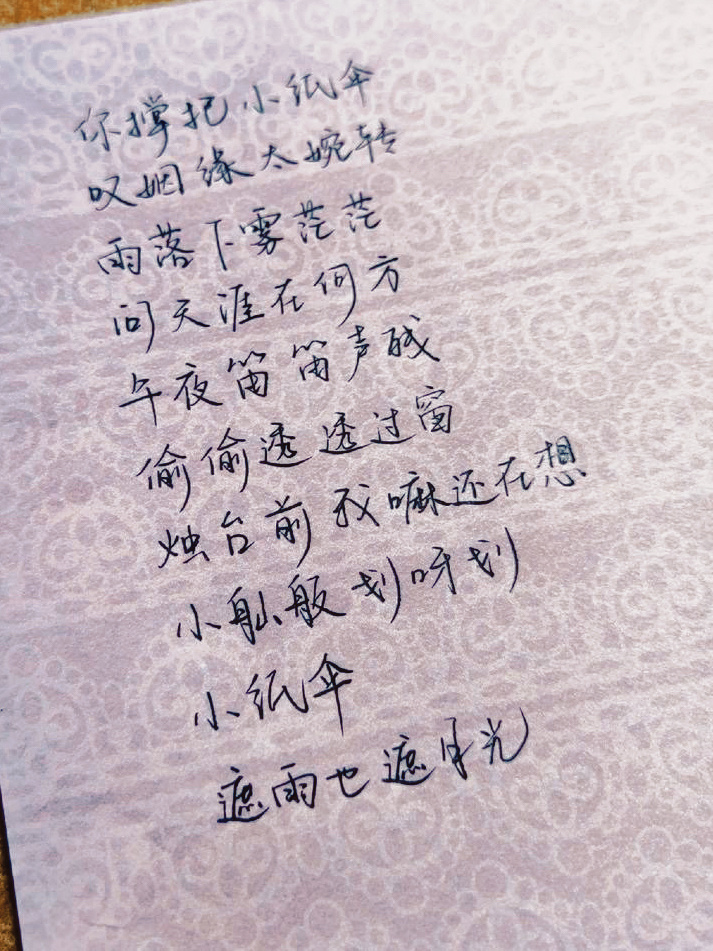 你撑把小纸伞
叹姻缘太婉转
雨落下雾茫茫
问天涯在何方
午夜笛笛声残
偷偷透透过窗
烛台前我嘛还在想
小舢舨划呀划
小纸伞
遮雨也遮月光